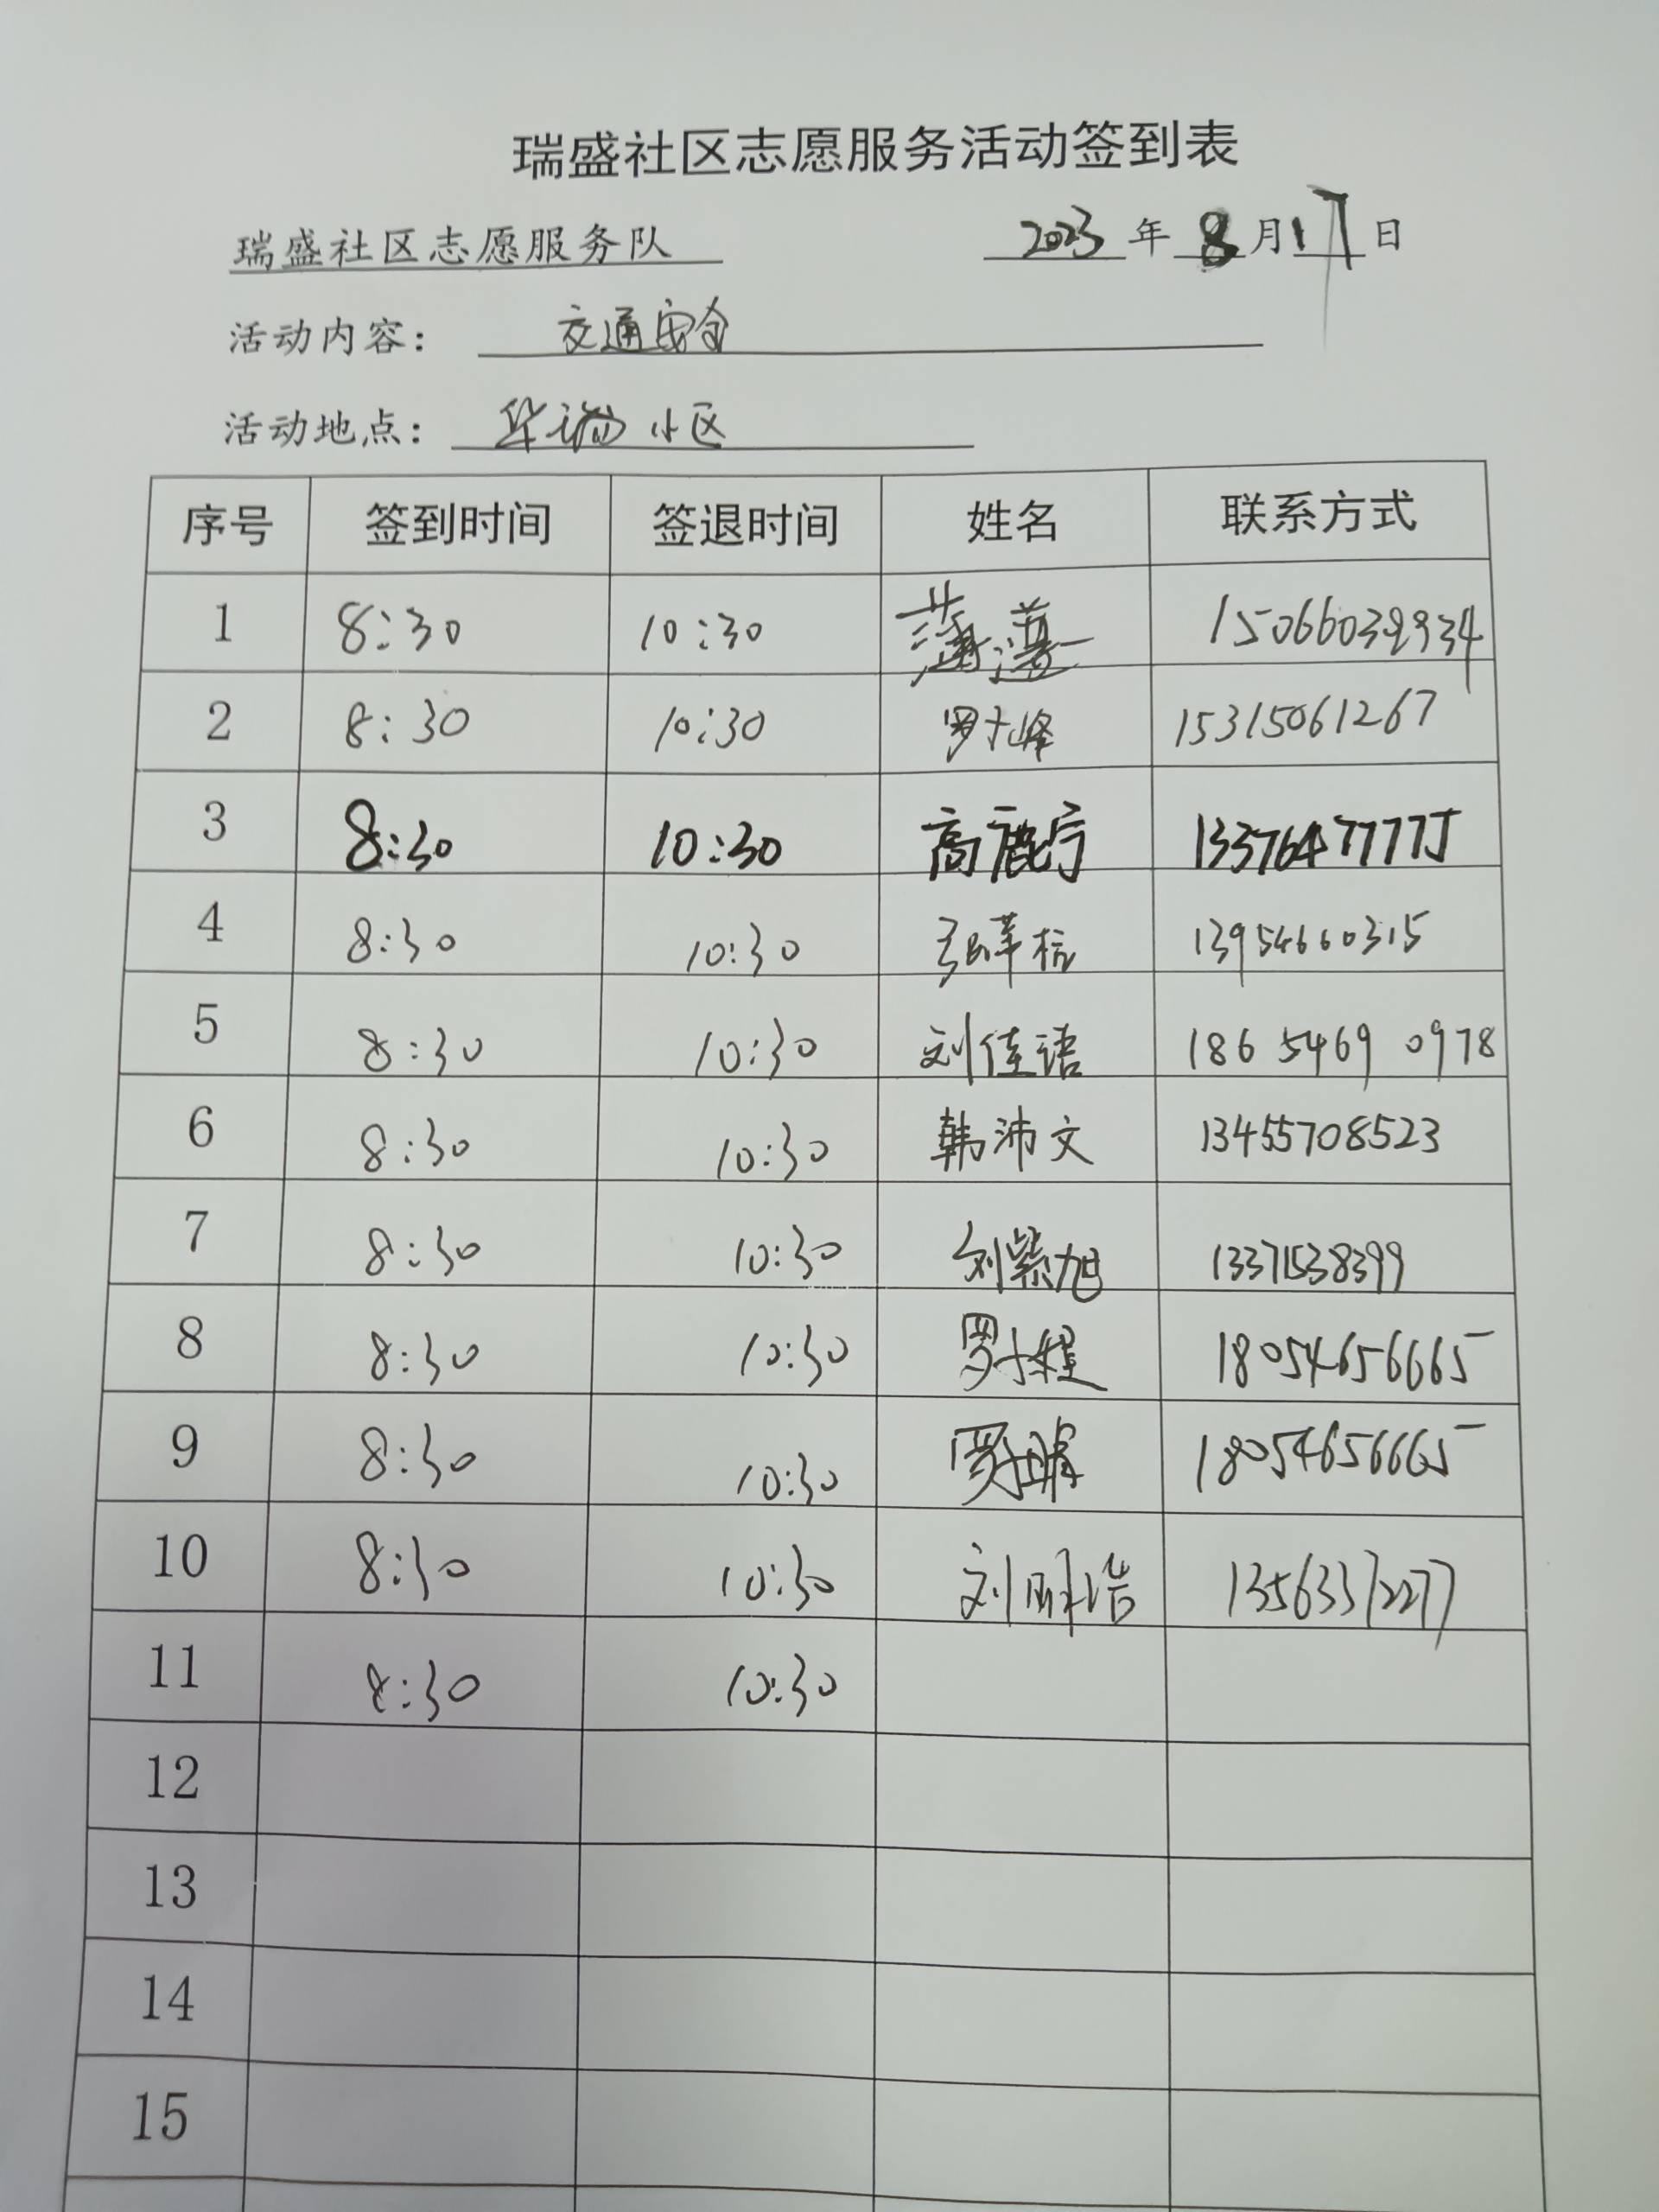 瑞盛社区志愿服务活动签到表
瑞盛社区志愿服务队 2023 年 8 月 17 日
活动内容: 交通安全
活动地点: 小区
序号 签到时间 签退时间 姓名 联系方式
1 8:30 10:30 15066039934
2 8:30 10:30 罗士峰 15315061267
3 8:30 10:30 高鹿宁 13376477775
4 8:30 10:30 13954660315
5 8:30 10:30 刘佳语 18654690978
6 8:30 10:30 韩沛文 13455708523
7 8:30 10:30 刘紫旭 13371538399
8 8:30 10:30 18054656665
9 8:30 10:30 18054656665
10 8:30 10:30 刘明浩 13563372277
11 8:30 10:30
12
13
14
15